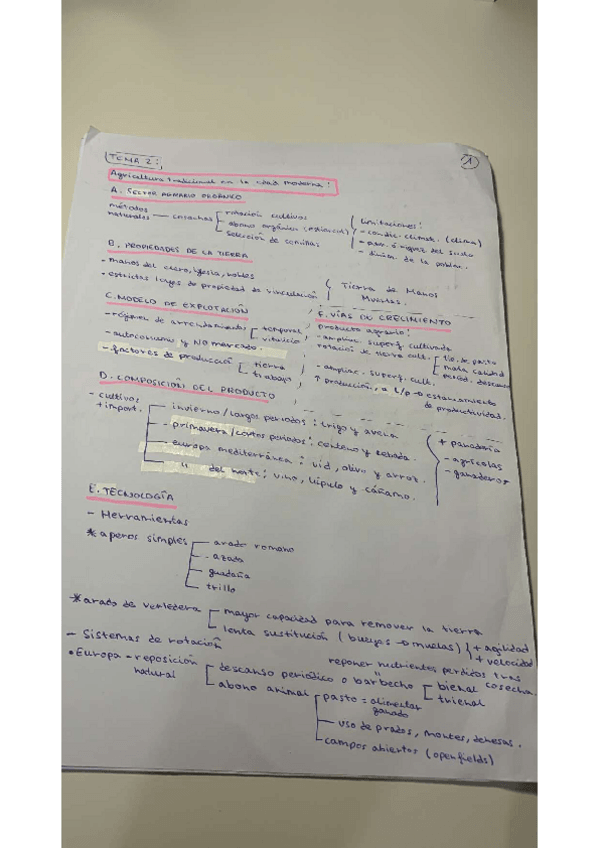 TEMA 2:
1
Agricultura tradicional en la edad moderna:
A. SECTOR AGRARIO ORGÁNICO
métodos naturales — cosechas
rotación cultivos
abono orgánico (estiércol)
selección de semillas
limitaciones:
- condic. climát. (clima)
del suelo
de la poblac.
B. PROPIEDADES DE LA TIERRA
- manos del clero, iglesia, nobles
- estrictas largas de propiedad de vinculación
Tierra de Manos
Muertas.
C. MODELO DE EXPLOTACIÓN
- régimen de arrendamiento
temporal
vitalicio
- autoconsumo y NO mercado.
- factores de producción
tierra
trabajo
F. VÍAS DE CRECIMIENTO
producto agrario:
- ampliac. superf. cultivada
rotación de tierra cult.
de pasto
mala calidad
period. descanso
- ampliac. superf. cult.
↑ producción, a L/p → estancamiento
de productividad.
D. COMPOSICIÓN DEL PRODUCTO
- cultivos
+ import.
invierno/largos periodos: trigo y avena
- primavera/cortos periodos: centeno y cebada.
europa mediterránea: vid, olivo y arroz.
" del norte: vino, lúpulo y cáñamo.
+ panadería
- agrícolas
- ganaderos
E. TECNOLOGÍA
- Herramientas
* aperos simples
arado romano
- azada
guadaña
trillo
* arado de vertedera
mayor capacidad para remover la tierra
lenta sustitución (bueyes → muelas)
+ agilidad
+ velocidad
- Sistemas de rotación
reponer nutrientes perdidos tras
cosecha.
• Europa - reposición
natural
descanso periódico o barbecho
bienal
trienal
abono animal
pasto = alimentar
ganado
uso de prados, montes, dehesas.
campos abiertos (openfields)